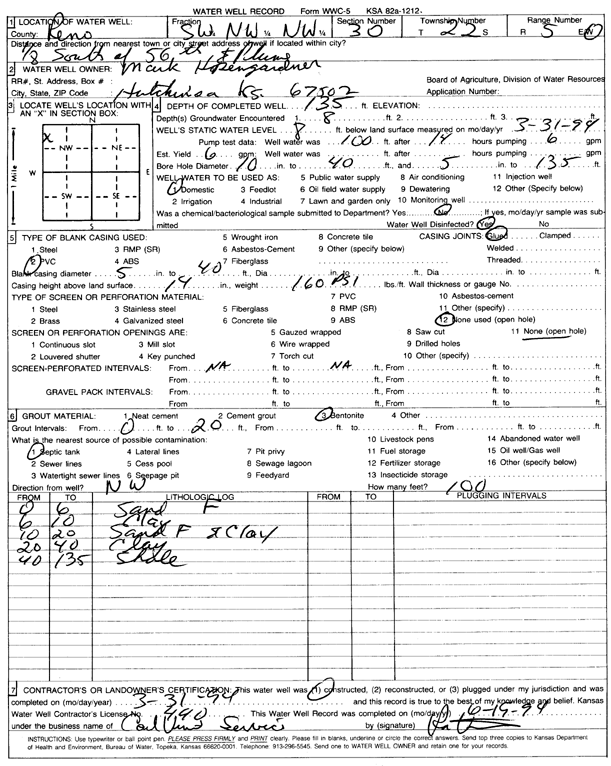 WATER WELL RECORD Form WWC-5 KSA 82a-1212-
1 LOCATION OF WATER WELL: Fraction Section Number Township Number Range Number
County: Reno SW ¼ NW ¼ NW ¼ 30 T 22 S R 5 E/W
Distance and direction from nearest town or city street address of well if located within city?
1/8 South of 56th & Plum
2 WATER WELL OWNER: Mark
RR#, St. Address, Box # : Board of Agriculture, Division of Water Resources
City, State, ZIP Code : Hutchinson Ks. 67502 Application Number:
3 LOCATE WELL'S LOCATION WITH AN "X" IN SECTION BOX: 4 DEPTH OF COMPLETED WELL 135 ft. ELEVATION:
N Depth(s) Groundwater Encountered 1. 8 ft. 2. ft. 3. ft.
X WELL'S STATIC WATER LEVEL 8 ft. below land surface measured on mo/day/yr 3-31-94
NW NE Pump test data: Well water was 100 ft. after 14 hours pumping 6 gpm
Est. Yield 6 gpm: Well water was ft. after hours pumping gpm
W E 1 Mile Bore Hole Diameter 10 in. to 40 ft., and 5 in. to 135 ft.
WELL WATER TO BE USED AS: 5 Public water supply 8 Air conditioning 11 Injection well
SW SE 1 Domestic 3 Feedlot 6 Oil field water supply 9 Dewatering 12 Other (Specify below)
2 Irrigation 4 Industrial 7 Lawn and garden only 10 Monitoring well
S Was a chemical/bacteriological sample submitted to Department? Yes No If yes, mo/day/yr sample was sub-
mitted Water Well Disinfected? Yes No
5 TYPE OF BLANK CASING USED: 5 Wrought iron 8 Concrete tile CASING JOINTS: Glued Clamped
1 Steel 3 RMP (SR) 6 Asbestos-Cement 9 Other (specify below) Welded
2 PVC 4 ABS 7 Fiberglass Threaded
Blank casing diameter 5 in. to 40 ft., Dia in. to ft., Dia in. to ft.
Casing height above land surface 14 in., weight 160 PSI lbs./ft. Wall thickness or gauge No.
TYPE OF SCREEN OR PERFORATION MATERIAL: 7 PVC 10 Asbestos-cement
1 Steel 3 Stainless steel 5 Fiberglass 8 RMP (SR) 11 Other (specify)
2 Brass 4 Galvanized steel 6 Concrete tile 9 ABS 12 None used (open hole)
SCREEN OR PERFORATION OPENINGS ARE: 5 Gauzed wrapped 8 Saw cut 11 None (open hole)
1 Continuous slot 3 Mill slot 6 Wire wrapped 9 Drilled holes
2 Louvered shutter 4 Key punched 7 Torch cut 10 Other (specify)
SCREEN-PERFORATED INTERVALS: From NA ft. to NA ft., From ft. to ft.
From ft. to ft., From ft. to ft.
GRAVEL PACK INTERVALS: From ft. to ft., From ft. to ft.
From ft. to ft., From ft. to ft.
6 GROUT MATERIAL: 1 Neat cement 2 Cement grout 3 Bentonite 4 Other
Grout Intervals: From 0 ft. to 20 ft., From ft. to ft., From ft. to ft.
What is the nearest source of possible contamination: 10 Livestock pens 14 Abandoned water well
1 Septic tank 4 Lateral lines 7 Pit privy 11 Fuel storage 15 Oil well/Gas well
2 Sewer lines 5 Cess pool 8 Sewage lagoon 12 Fertilizer storage 16 Other (specify below)
3 Watertight sewer lines 6 Seepage pit 9 Feedyard 13 Insecticide storage
Direction from well? NW How many feet? 100
FROM TO LITHOLOGIC LOG FROM TO PLUGGING INTERVALS
0 6 Sand F
6 10 Clay
10 20 Sand F & Clay
20 40 Clay
40 135 Shale
7 CONTRACTOR'S OR LANDOWNER'S CERTIFICATION: This water well was (1) constructed, (2) reconstructed, or (3) plugged under my jurisdiction and was
completed on (mo/day/year) 3-31-94 and this record is true to the best of my knowledge and belief. Kansas
Water Well Contractor's License No. 490 This Water Well Record was completed on (mo/day/yr) 6-19-94
under the business name of Service by (signature)
INSTRUCTIONS: Use typewriter or ball point pen. PLEASE PRESS FIRMLY and PRINT clearly. Please fill in blanks, underline or circle the correct answers. Send top three copies to Kansas Department
of Health and Environment, Bureau of Water, Topeka, Kansas 66620-0001. Telephone: 913-296-5545. Send one to WATER WELL OWNER and retain one for your records.